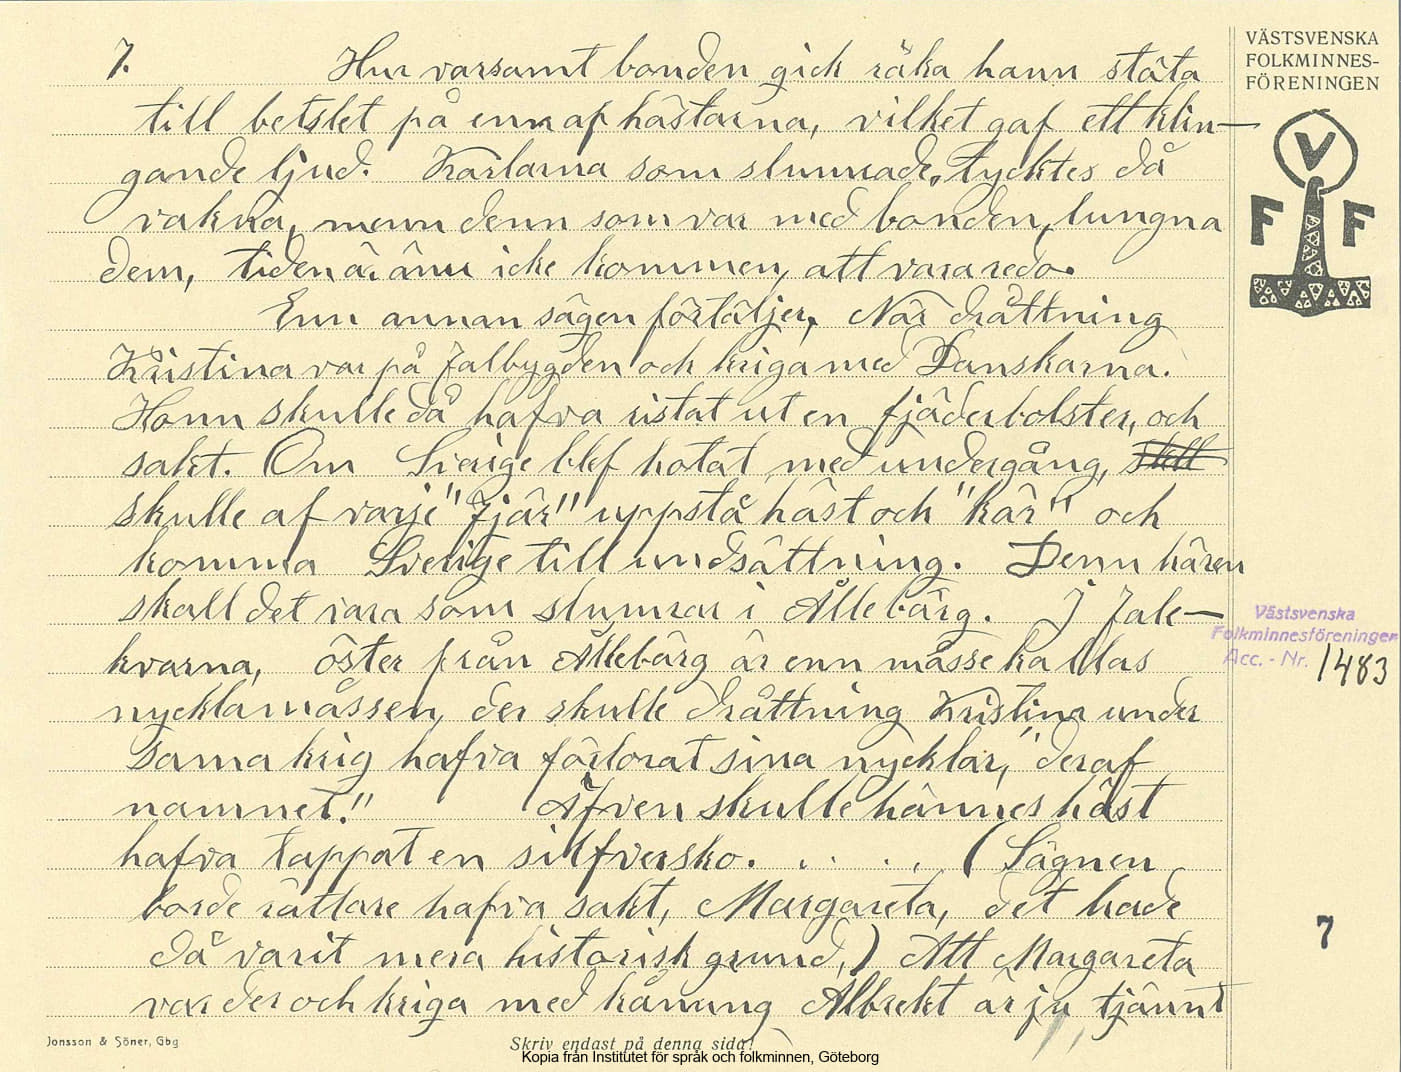 7.
Hur varsamt bonden gick råka hann stöta
till betslet på enn af hästarna, vilket gaf ett klin-
gande ljud. Karlarna som slumrade, tycktes då
vakna, menn denn som var med bonden, lungna
dem, tiden är ännu icke kommen, att vara redo.
Enn annan sägen förtäljer, När dråttning
Kristina var på Falbygden och kriga med Danskarna.
Honn skulle då hafva ristat ut en fjäderbolster, och
sakt. Om Sverige blef hotat med undergång,
skulle af varje "fjär" uppstå häst och "kär" och
komma Sverige till undsättning. Denn hären
skall det vara som slumrar i Ållebärg. I Fale-
kvarna, öster från Ållebärg är enn måsse kallas
nycklamåssen, der skulle dråttning Kristina under
sama krig hafva förlorat sina nycklar, "deraf
namnet." Äfven skulle hännes häst
hafva tappat en silfversko. . . . . (Sägnen
borde rättare hafva sakt, Margareta, det hade
då varit mera historisk grund,) Att Margareta
var der och kriga med kånung Albrekt är ju tjännt
VÄSTSVENSKA
FOLKMINNES-
FÖRENINGEN
V
F F
Västsvenska
Folkminnesföreningen
Acc. - Nr. 1483
7
Jonsson & Söner, Gbg
Skriv endast på denna sida!
Kopia från Institutet för språk och folkminnen, Göteborg